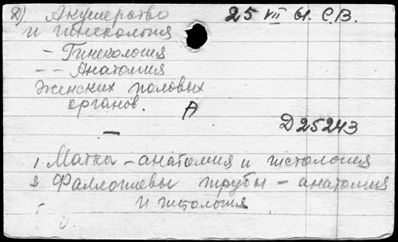 2) Акушерство 25 VII 61. С.В.
и гинекология
– Гинекология
– – Анатомия
женских половых
органов. А
—
Д25243
1. Матка – анатомия и гистология
2. Фаллопиевы трубы – анатомия
и гистология